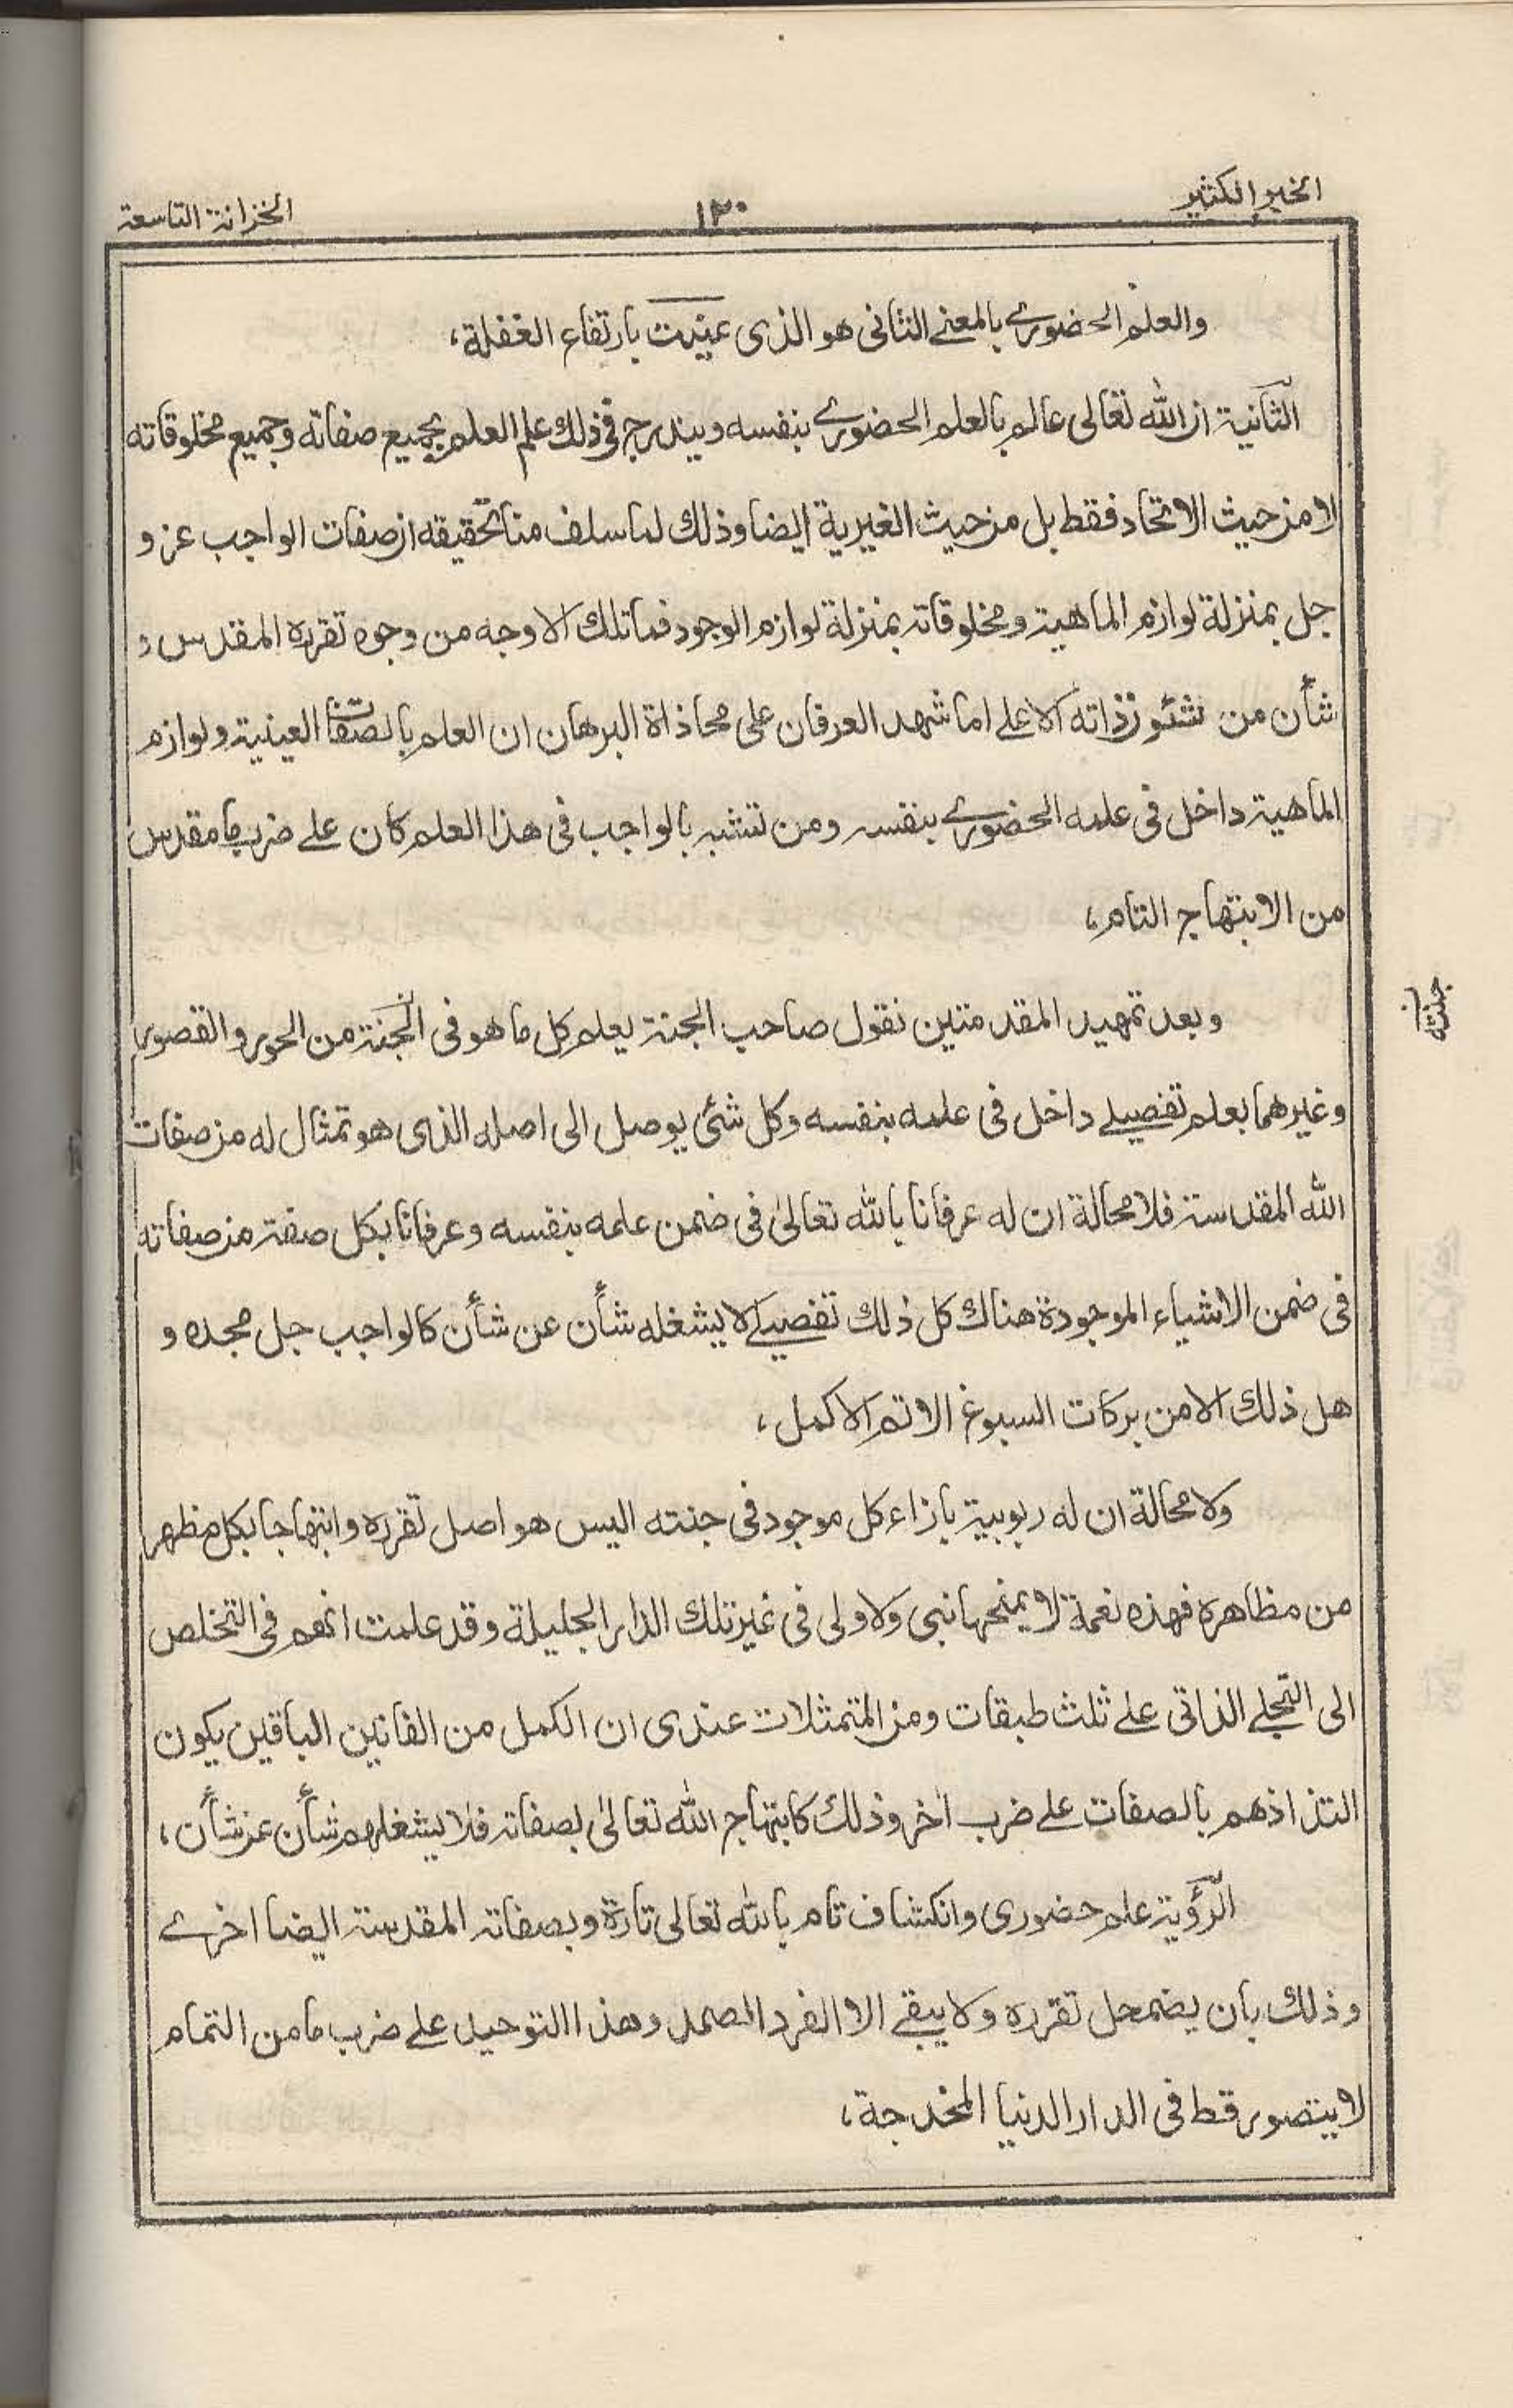 الخير الكثير
١٢٠
الخزانة التاسعة
والعلم الحضوري بالمعنى الثاني هو الذى عنيت بارتفاع الغفلة،
الثانية ان الله تعالى عالم بالعلم الحضوري بنفسه ويندرج فى ذلك علم العلم بجميع صفاته وجميع مخلوقاته
لا من حيث الاتحاد فقط بل من حيث الغيرية ايضا وذلك لما سلف منا تحقيقه ان صفات الواجب عز و
جل بمنزلة لوازم الماهية ومخلوقاته بمنزلة لوازم الوجود فما تلك الا وجه من وجوه تقرره المقدس و
شأن من شئون ذاته الاعلى اما شهد العرفان على محاذاة البرهان ان العلم بالصفات العينية ولوازم
الماهية داخل فى علمه الحضوري بنفسه ومن تشبه بالواجب فى هذا العلم كان على ضرب ما مقدس
من الابتهاج التام،
وبعد تمهيد المقدمتين نقول صاحب الجنة يعلم كل ما هو فى الجنة من الحور والقصور
جنته
وغيرهما بعلم تفصيلي داخل فى علمه بنفسه وكل شئ يوصل الى اصله الذى هو تمثال له من صفات
الله المقدسة فلا محالة ان له عرفانا بالله تعالى فى ضمن علمه بنفسه وعرفانا بكل صفة من صفاته
فى ضمن الاشياء الموجودة هناك كل ذلك تفصيلي لا يشغله شأن عن شأن كالواجب جل مجده و
هل ذلك الا من بركات السبوغ الاتم الاكمل،
ولا محالة ان له ربوبية بازاء كل موجود فى جنته اليس هو اصل تقرره وابتهاجا بكل مظهر
من مظاهره فهذه نعمة لا يمنحها نبى ولا ولى فى غير تلك الدار الجليلة وقد علمت انهم فى التخلص
الى التجلي الذاتى على ثلث طبقات ومن المتمثلات عندى ان الكمل من الفانين الباقين يكون
التذاذهم بالصفات على ضرب اخر وذلك كابتهاج الله تعالى بصفاته فلا يشغلهم شأن عن شأن،
الرؤية علم حضورى وانكشاف تام بالله تعالى تارة وبصفاته المقدسة ايضا اخرى
وذلك بان يضمحل تقرره ولا يبقى الا الفرد الصمد وهذا التوحيد على ضرب ما من التمام
لا يتصور قط فى الدار الدنيا المخدجة،